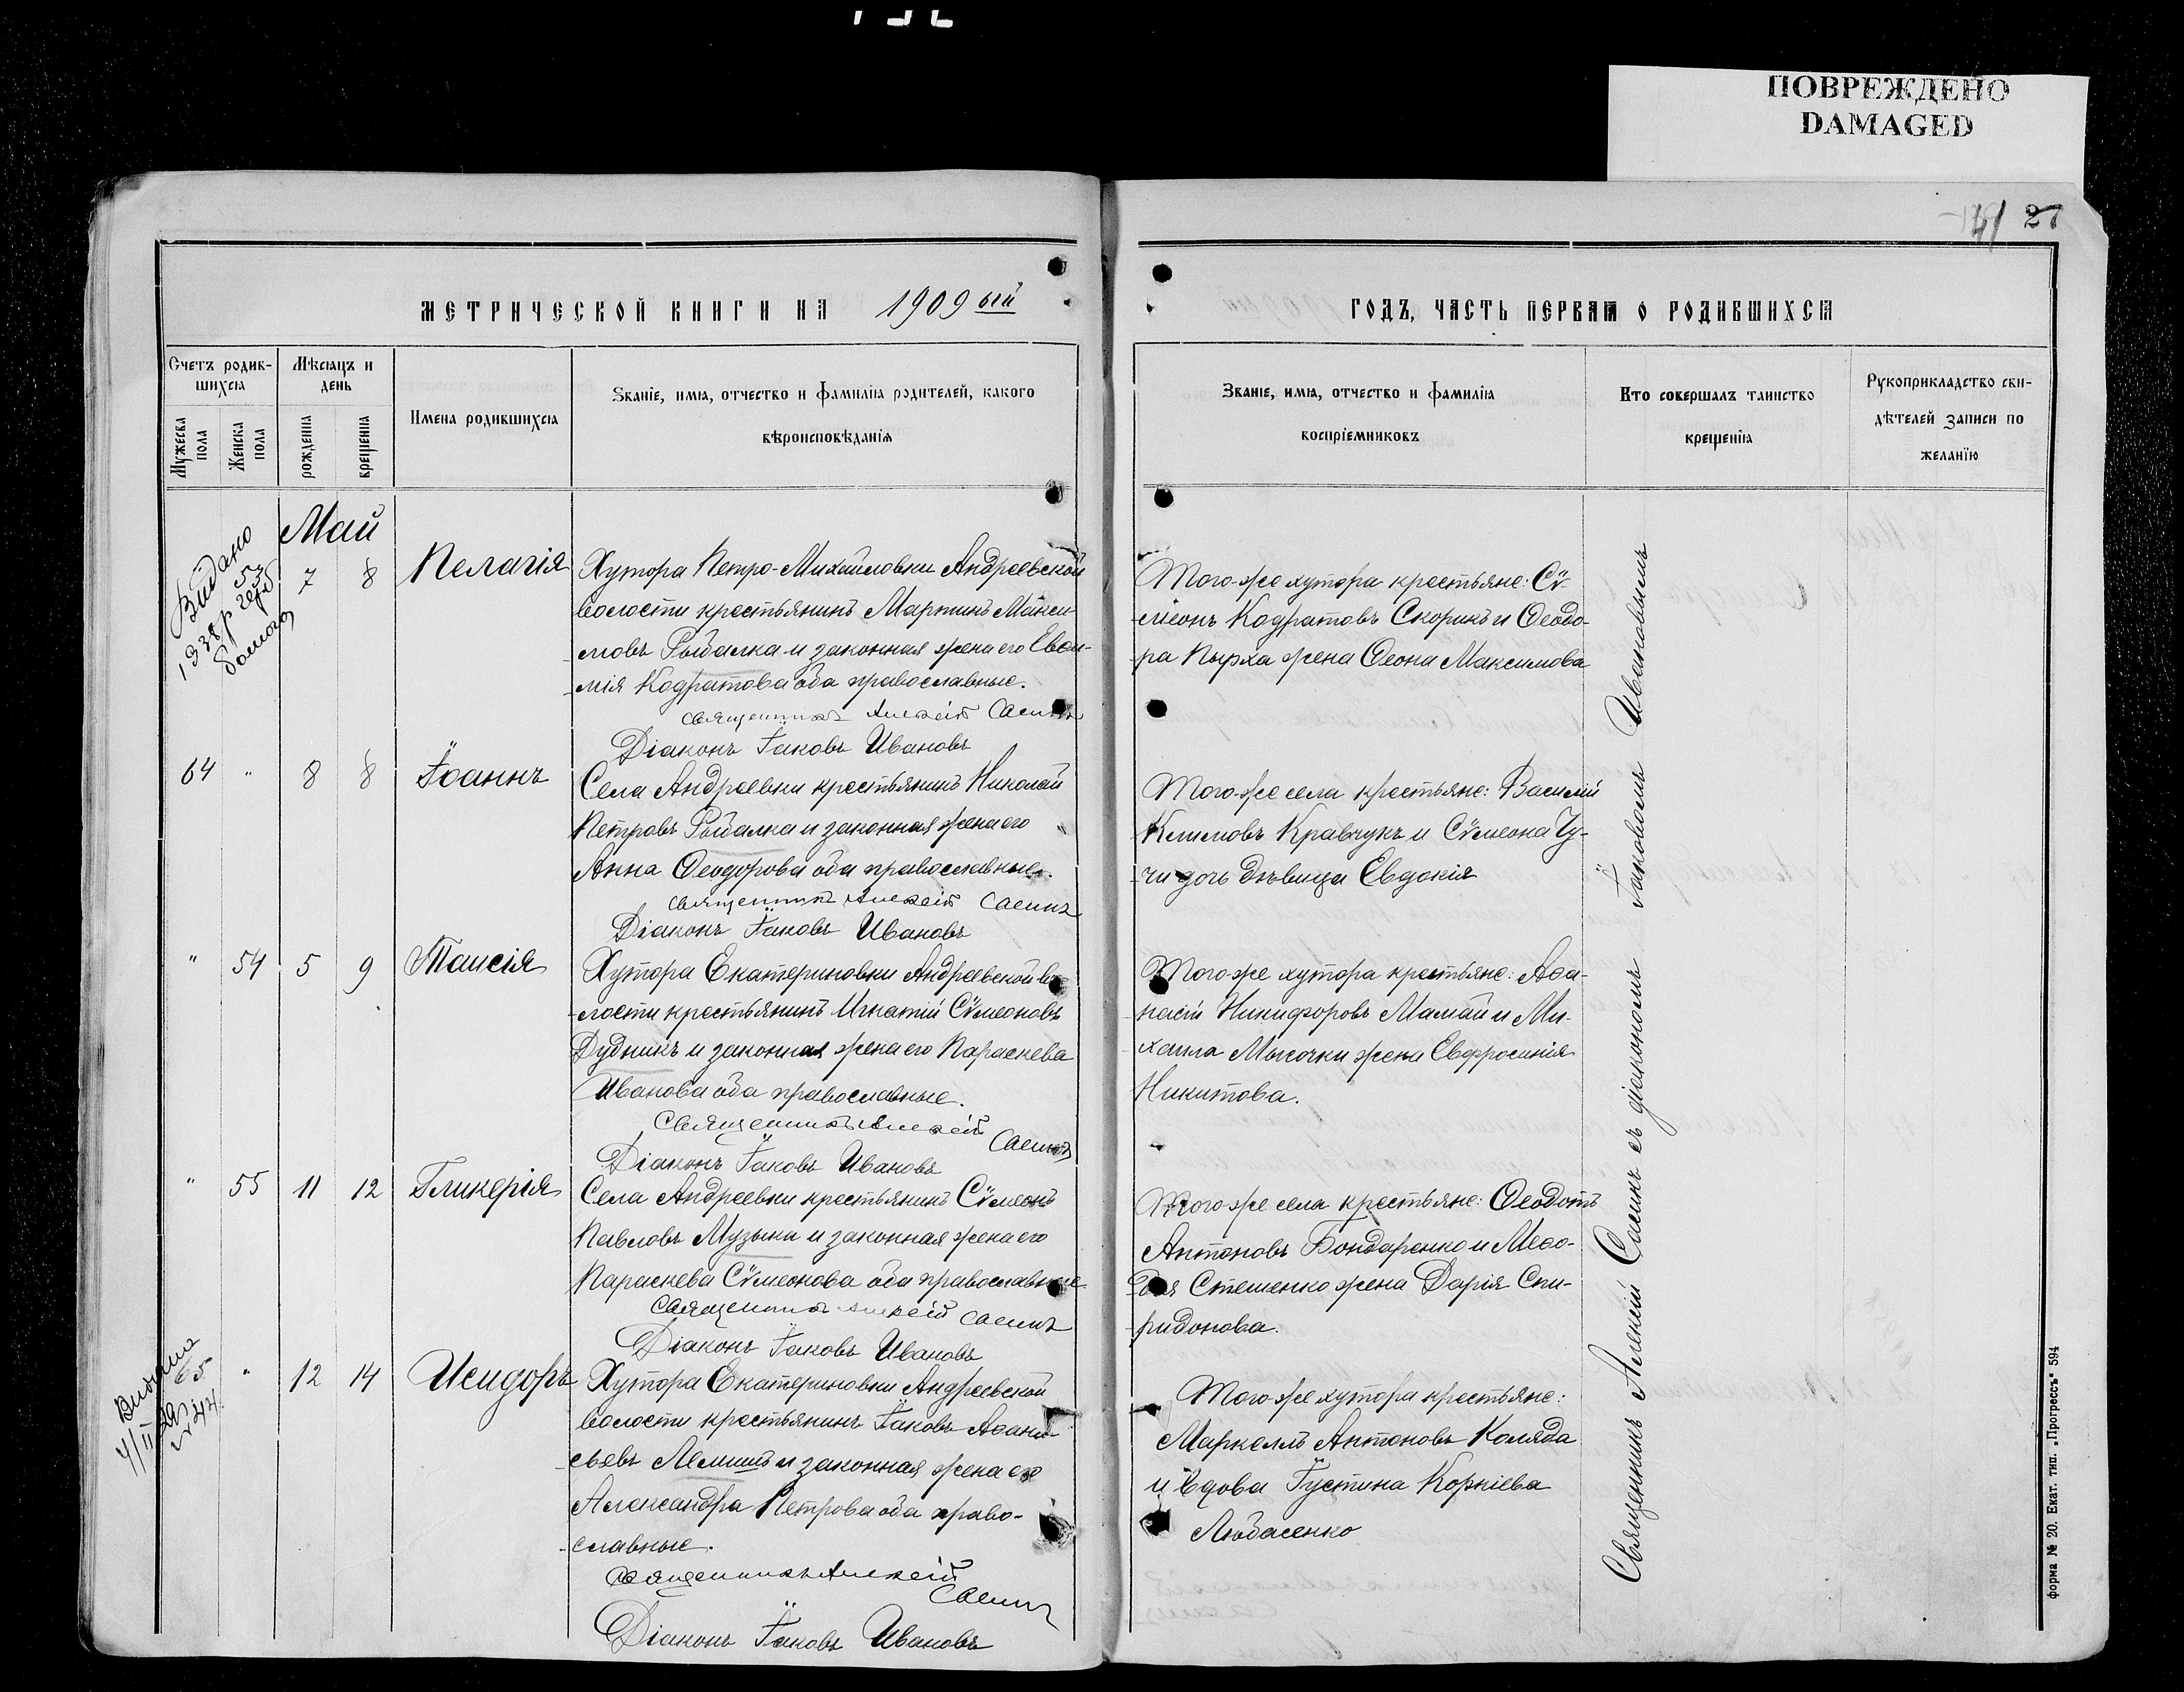 ПОВРЕЖДЕНО
DAMAGED
27
МЕТРИЧЕСКОЙ КНИГИ НА 1909 ый
Счетъ родив-
шихся
Мужеска
пола
Женска
пола
Мѣсяцъ и
день
рожденія
крещенія
Имена родившихся
Званіе, имя, отчество и фамилія родителей, какого
вѣроисповѣданія
ГОДЪ, ЧАСТЬ ПЕРВАЯ О РОДИВШИХСЯ
Званіе, имя, отчество и фамилія
воспріемниковъ
Кто совершалъ таинство
крещенія
Рукоприкладство сви-
дѣтелей записи по
желанію
Май
Видано
1938 р
7 8 Пелагія
Хутора Петро-Михайловки Андреевской
волости крестьянинъ Мартинъ Макси-
мовъ Рыбалка и законная жена его Евѳи-
мія Кодратова оба православные.
священникъ Алексій Саенкъ
Діаконъ Іаковъ Ивановъ
Того-же хутора крестьяне: Сѵ-
меонъ Кодратовъ Скорикъ и Ѳеодо-
ра Пырха жена Ѳеона Максимова
64 " 8 8 Іоаннъ
Села Андреевки крестьянинъ Николай
Петровъ Рыбалка и законная жена его
Анна Ѳеодорова оба православные.
священникъ Алексій Саенкъ
Діаконъ Іаковъ Ивановъ
Того-же села крестьяне: Василій
Климовъ Кравчукъ и Сѵмеона Чу-
чи дочь дѣвица Евдокія
" 54 5 9 Таисія
Хутора Екатериновки Андреевской во-
лости крестьянинъ Игнатій Сѵмеоновъ
Дудникъ и законная жена его Параскева
Иванова оба православные.
Священникъ Алексій Саенкъ
Діаконъ Іаковъ Ивановъ
Того же хутора крестьяне: Аѳа-
насій Никифоровъ Мамай и Ми-
хаила Мысочки жена Евфросинія
Никитова.
" 55 11 12 Гликерія
Села Андреевки крестьянинъ Сѵмеонъ
Павловъ Музыка и законная жена его
Параскева Сѵмеонова оба православные
Священникъ Алексій Саенкъ
Діаконъ Іаковъ Ивановъ
Того же села крестьяне: Ѳеодотъ
Антоновъ Бондаренко и Меѳо-
дія Стешенко жена Дарія Спи-
ридонова.
65 " 12 14 Исидоръ
Хутора Екатериновки Андреевской
волости крестьянинъ Іаковъ Аѳана-
сьевъ Лемишъ и законная жена его
Александра Петрова оба право-
славные.
Священникъ Алексій
Саенкъ
Діаконъ Іаковъ Ивановъ
Того же хутора крестьяне:
Маркеллъ Антоновъ Коляда
и вдова Іустина Корніева
Любасенко
Священникъ Алексій Саенкъ съ діакономъ Іаковомъ Ивановымъ
форма № 20. Екат. тип. „Прогрессъ“ 594